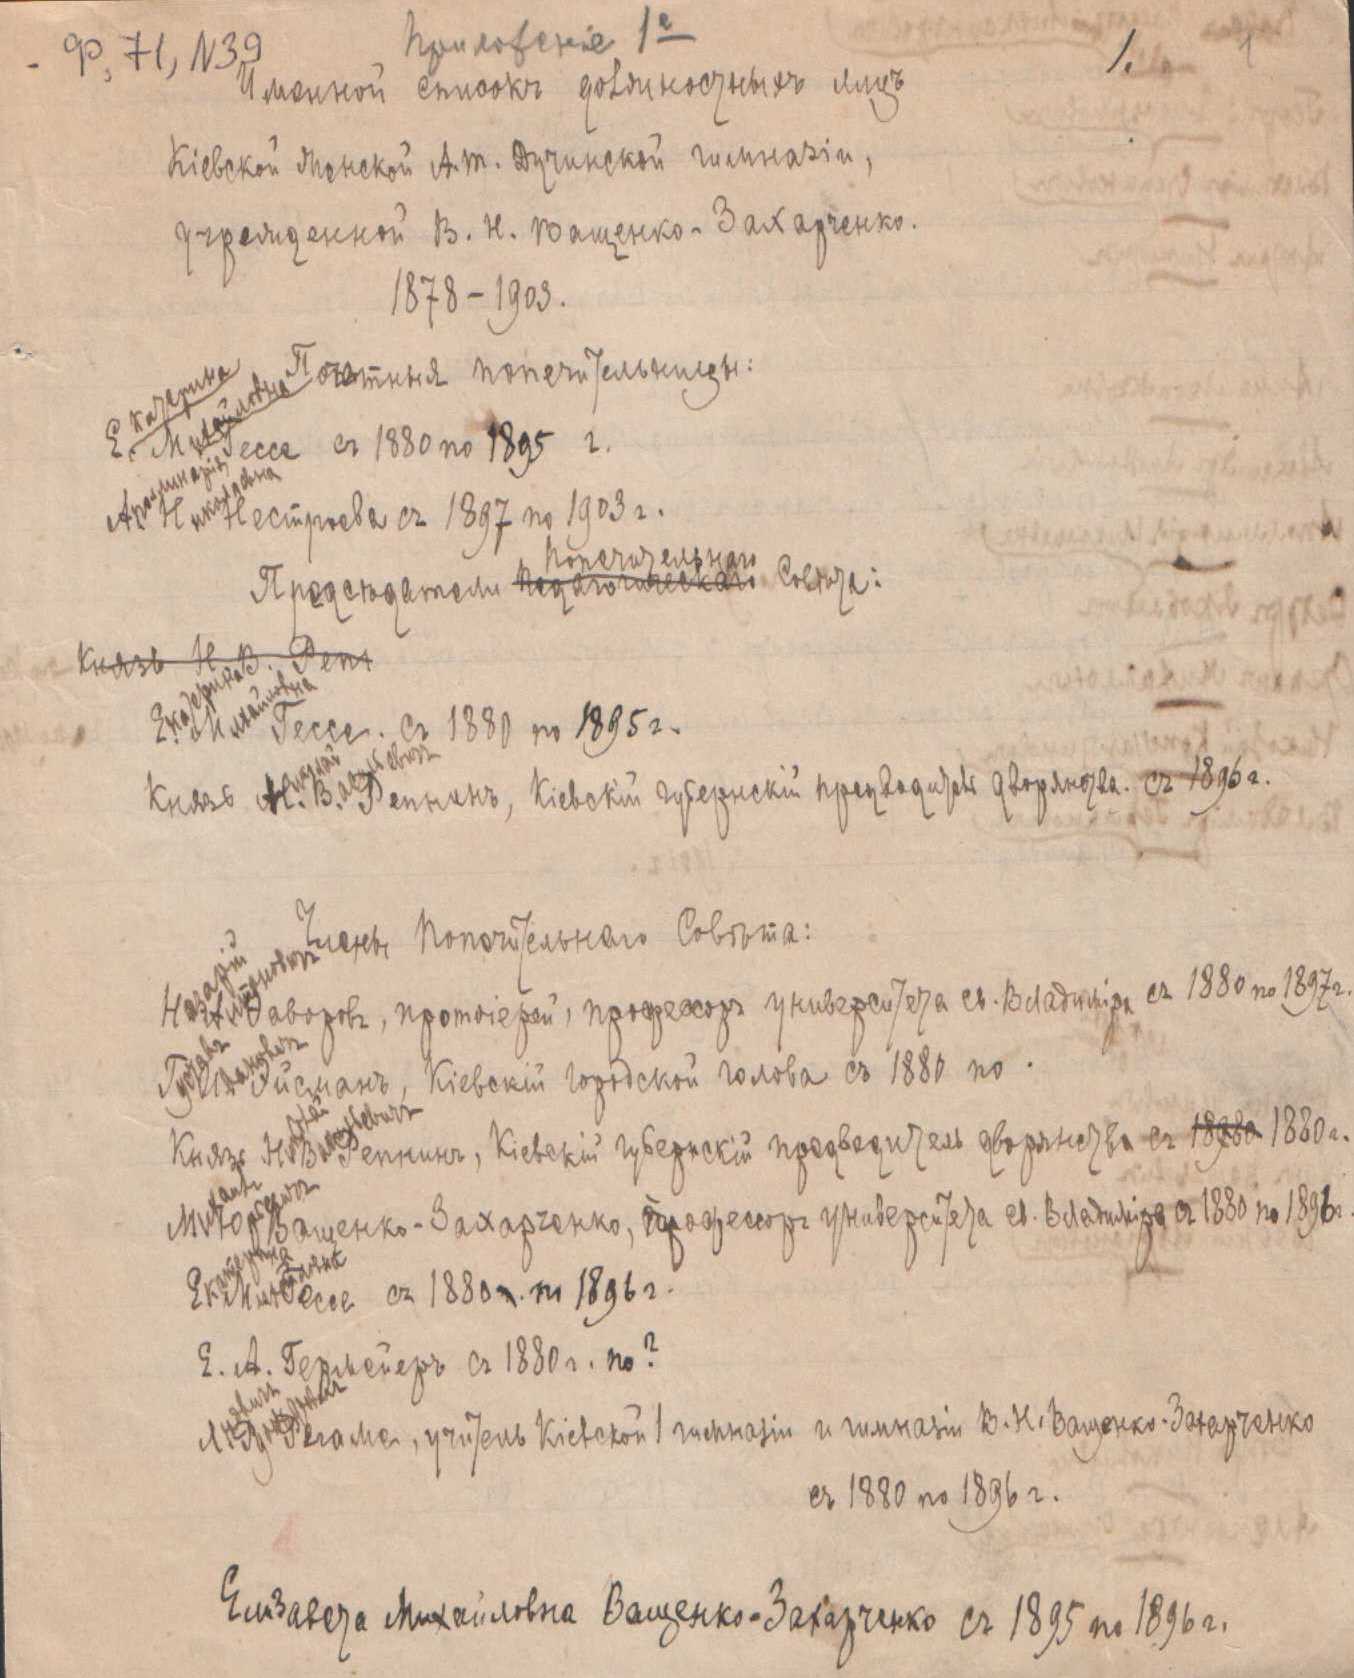 Ф. 71, N39
Приложеніе 1е
1.
1
Именной списокъ должностныхъ лицъ
Кіевской Женской А. Т. Дучинской гимназіи,
учрежденной В. Н. Ващенко-Захарченко.
1878-1903.
Почетныя попечительницы:
Екатерина Михайловна Гессе съ 1880 по 1895 г.
Аполлинарія Николаевна Нестроева съ 1897 по 1903 г.
Предсѣдатели Педагогическаго Попечительнаго Совѣта:
Князь Н. В. Репн
Екатерина Михайловна Гессе. съ 1880 по 1895 г.
Князь Николай Васильевичъ Репнинъ, Кіевскій губернскій предводитель дворянства. съ 1896 г.
Члены Попечительнаго Совѣта:
Назарій Антоновичъ Фаворовъ, протоіерей, профессоръ университета св. Владиміра съ 1880 по 1897 г.
Густавъ Ивановичъ Эйсманъ, Кіевскій городской голова съ 1880 по .
Князь Николай Васильевичъ Репнинъ, Кіевскій губернскій предводитель дворянства съ 1880 г.
Михаилъ Егоровичъ Ващенко-Захарченко, профессоръ университета св. Владиміра съ 1880 по 1896 г.
Екатерина Михайловна Гессе съ 1880 по 1896 г.
Е. А. Гермейеръ съ 1880 г. по ?
Регаме, учитель Кіевской 1 гимназіи и гимназіи В. Н. Ващенко-Захарченко
съ 1880 по 1896 г.
Елизавета Михайловна Ващенко-Захарченко съ 1895 по 1896 г.